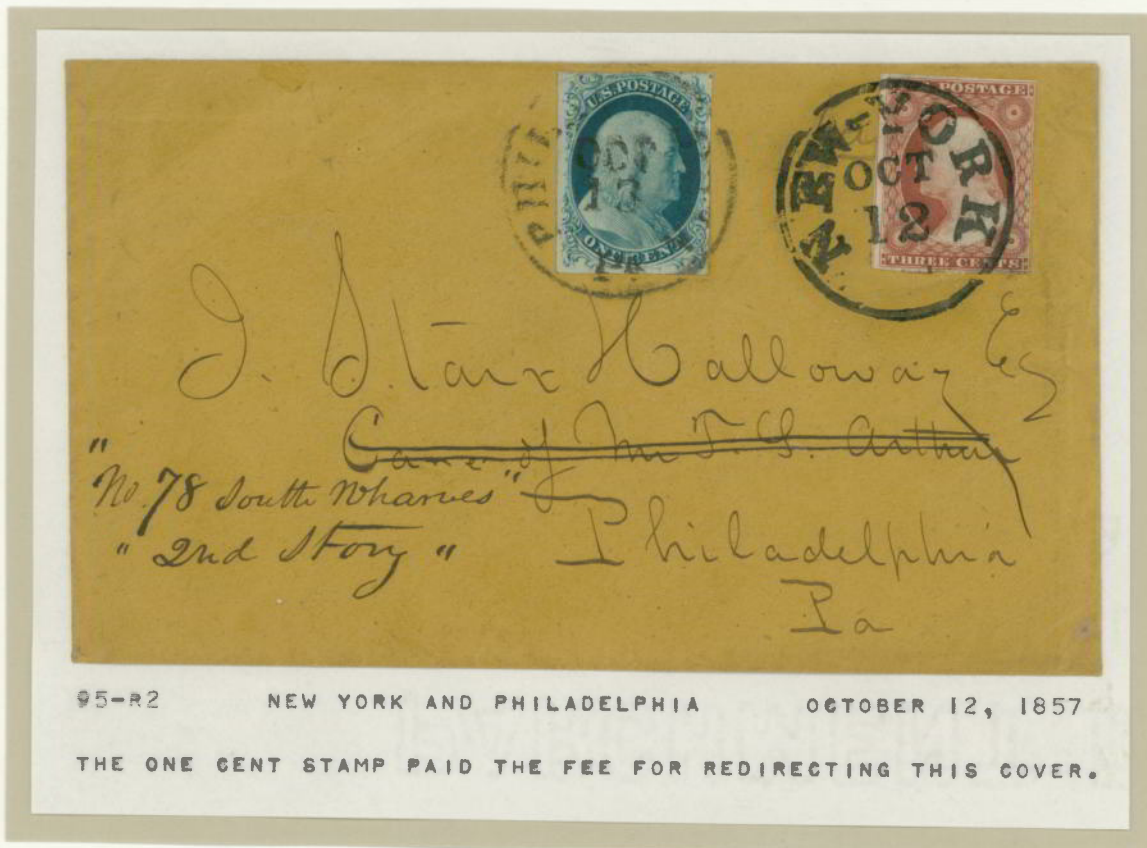 U.S. POSTAGE
ONE CENT
PHIL
OCT
13
PA
POSTAGE
THREE CENTS
NEW-YORK
OCT
12
J. Starr Halloway Esq
Care of Mr T. S. Arthur
" No. 78 South Wharves "
" 2nd Story "
Philadelphia
Pa
95-R2 NEW YORK AND PHILADELPHIA OCTOBER 12, 1857
THE ONE CENT STAMP PAID THE FEE FOR REDIRECTING THIS COVER.